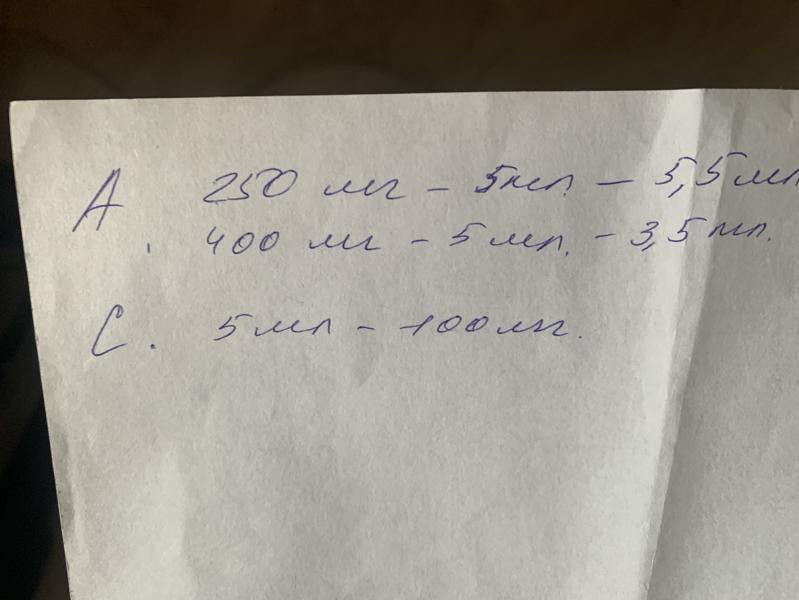 А. 250 мг - 5мл. - 5,5мл
400 мг - 5 мл. - 3,5 мл.
С. 5 мл - 100 мг.